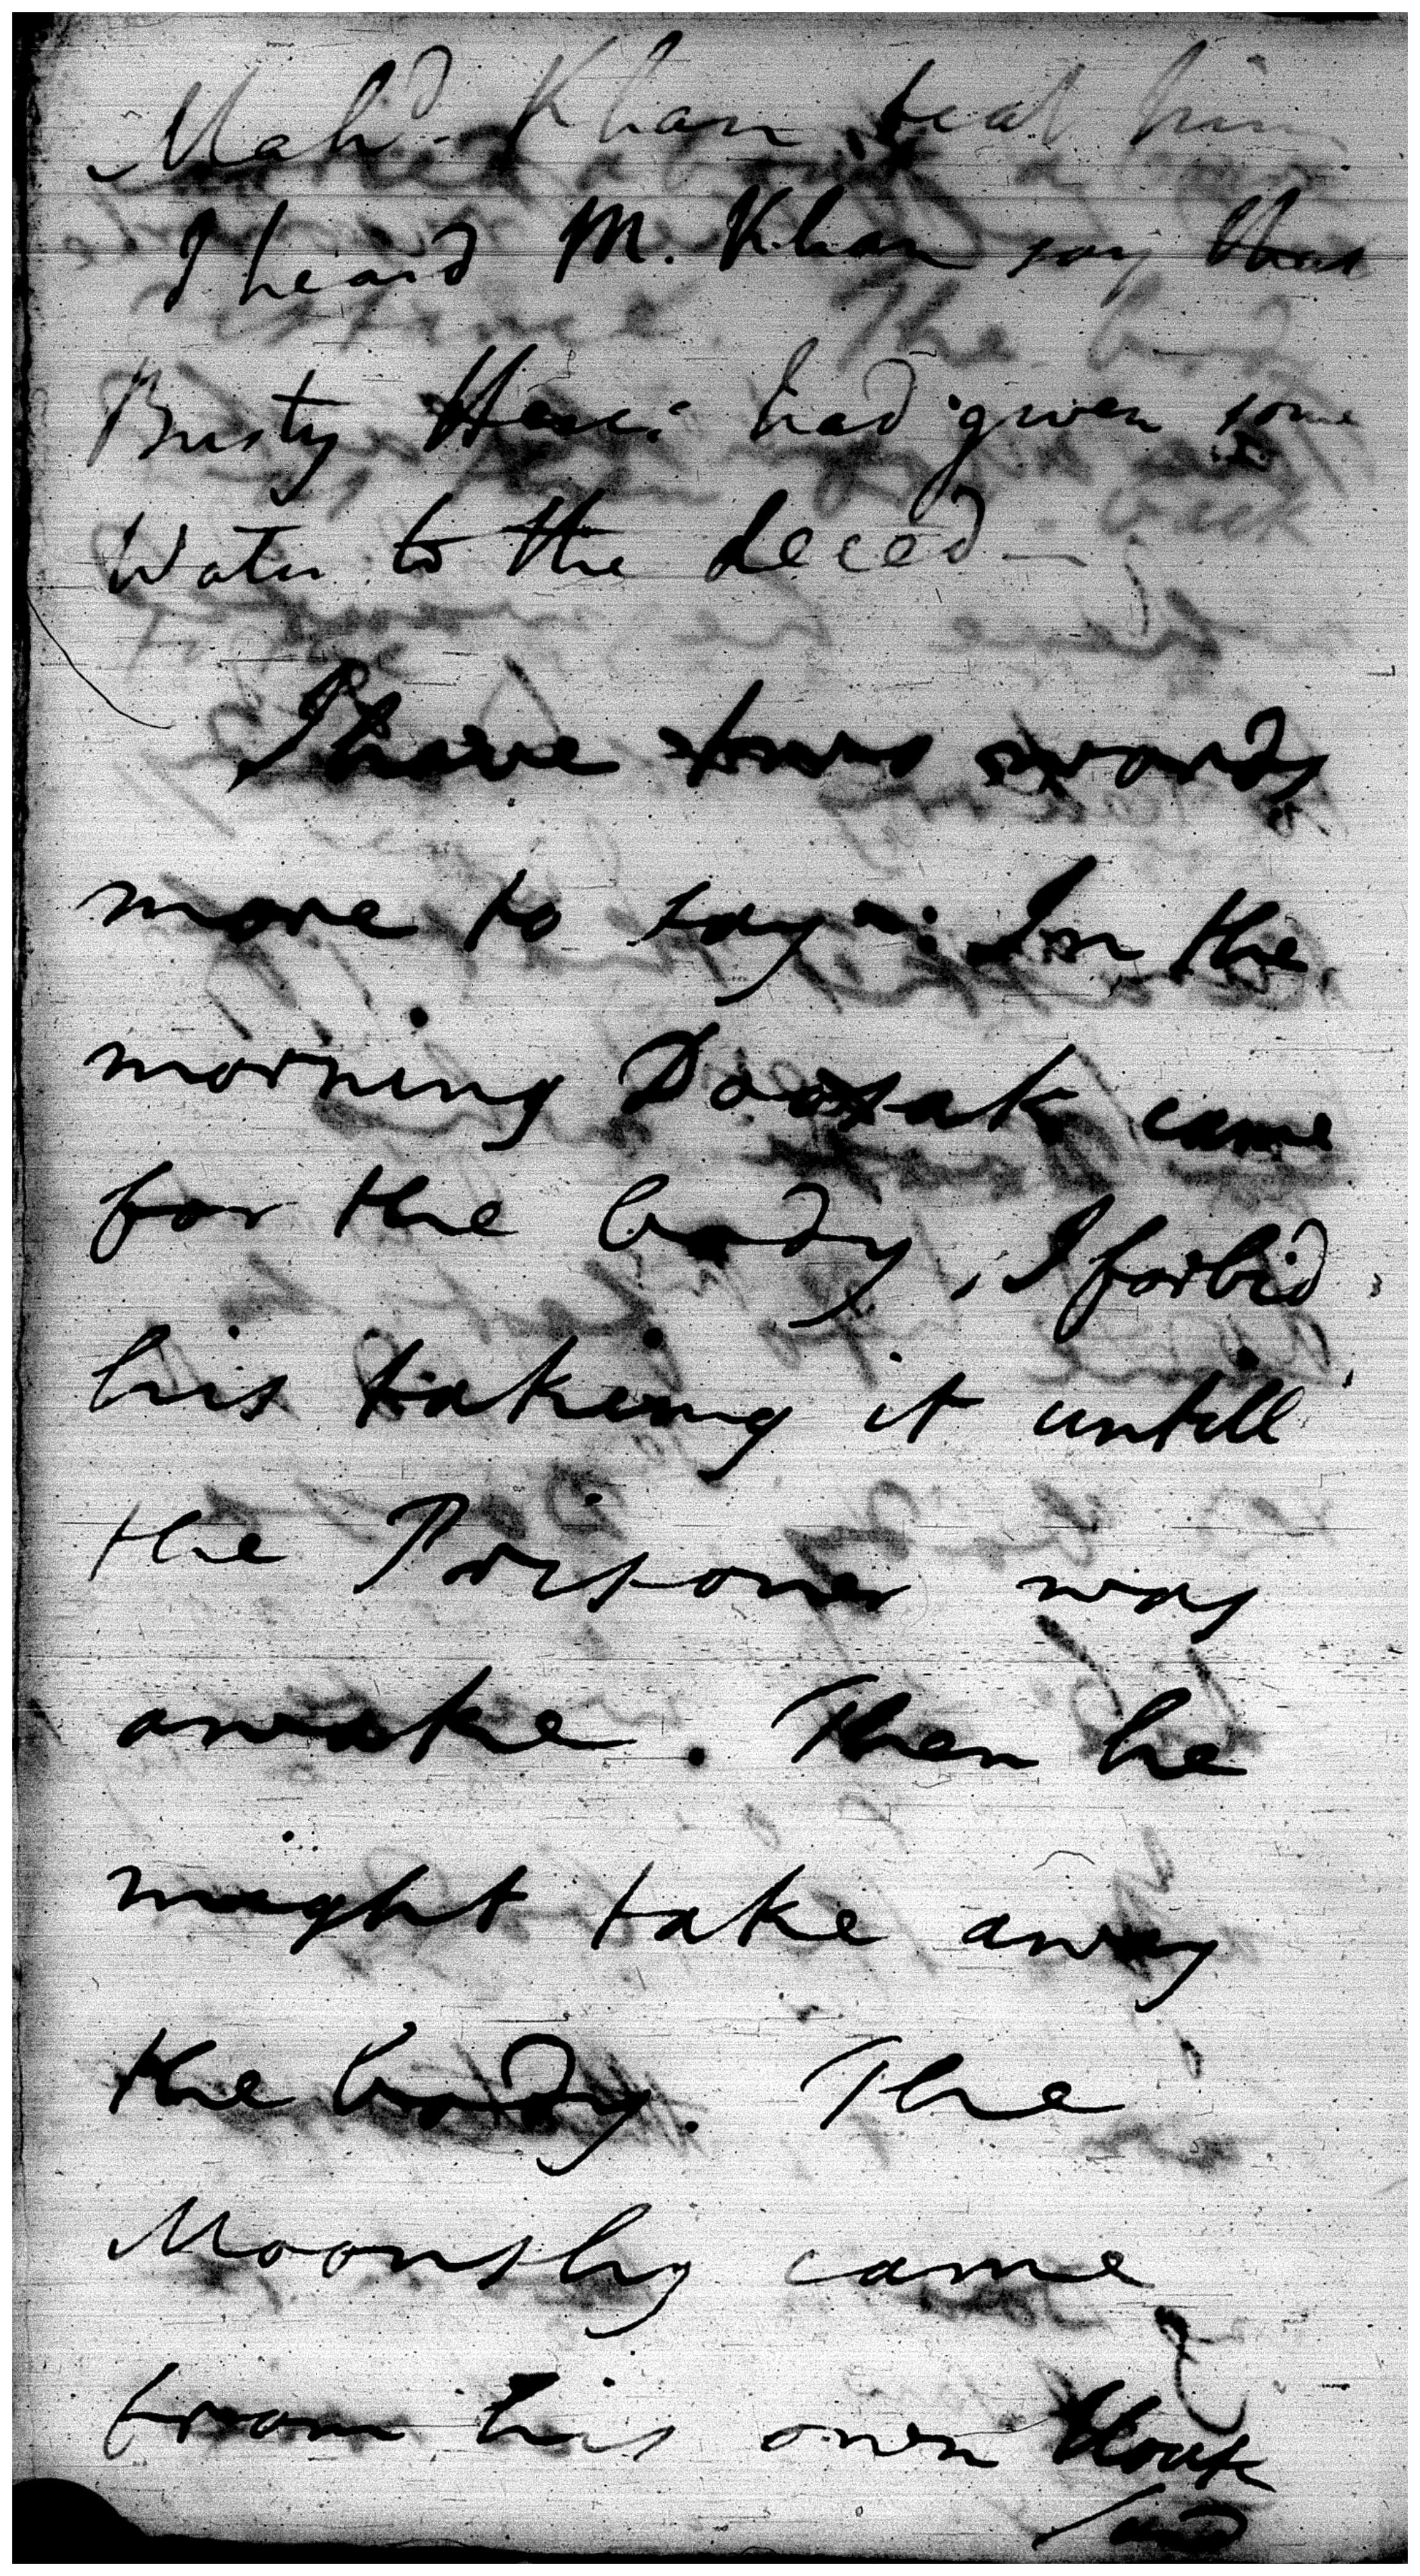 Mahd. Khan beat him
I heard M. Khan say that
Busty had given some
Water to the deced —
I have words
more to say : In the
morning Doosak came
for the body, I forbid
his takeing it untill
the Prisoner was
awake. Then he
might take away
the body. The
Moonshy came
from his own Hous
and